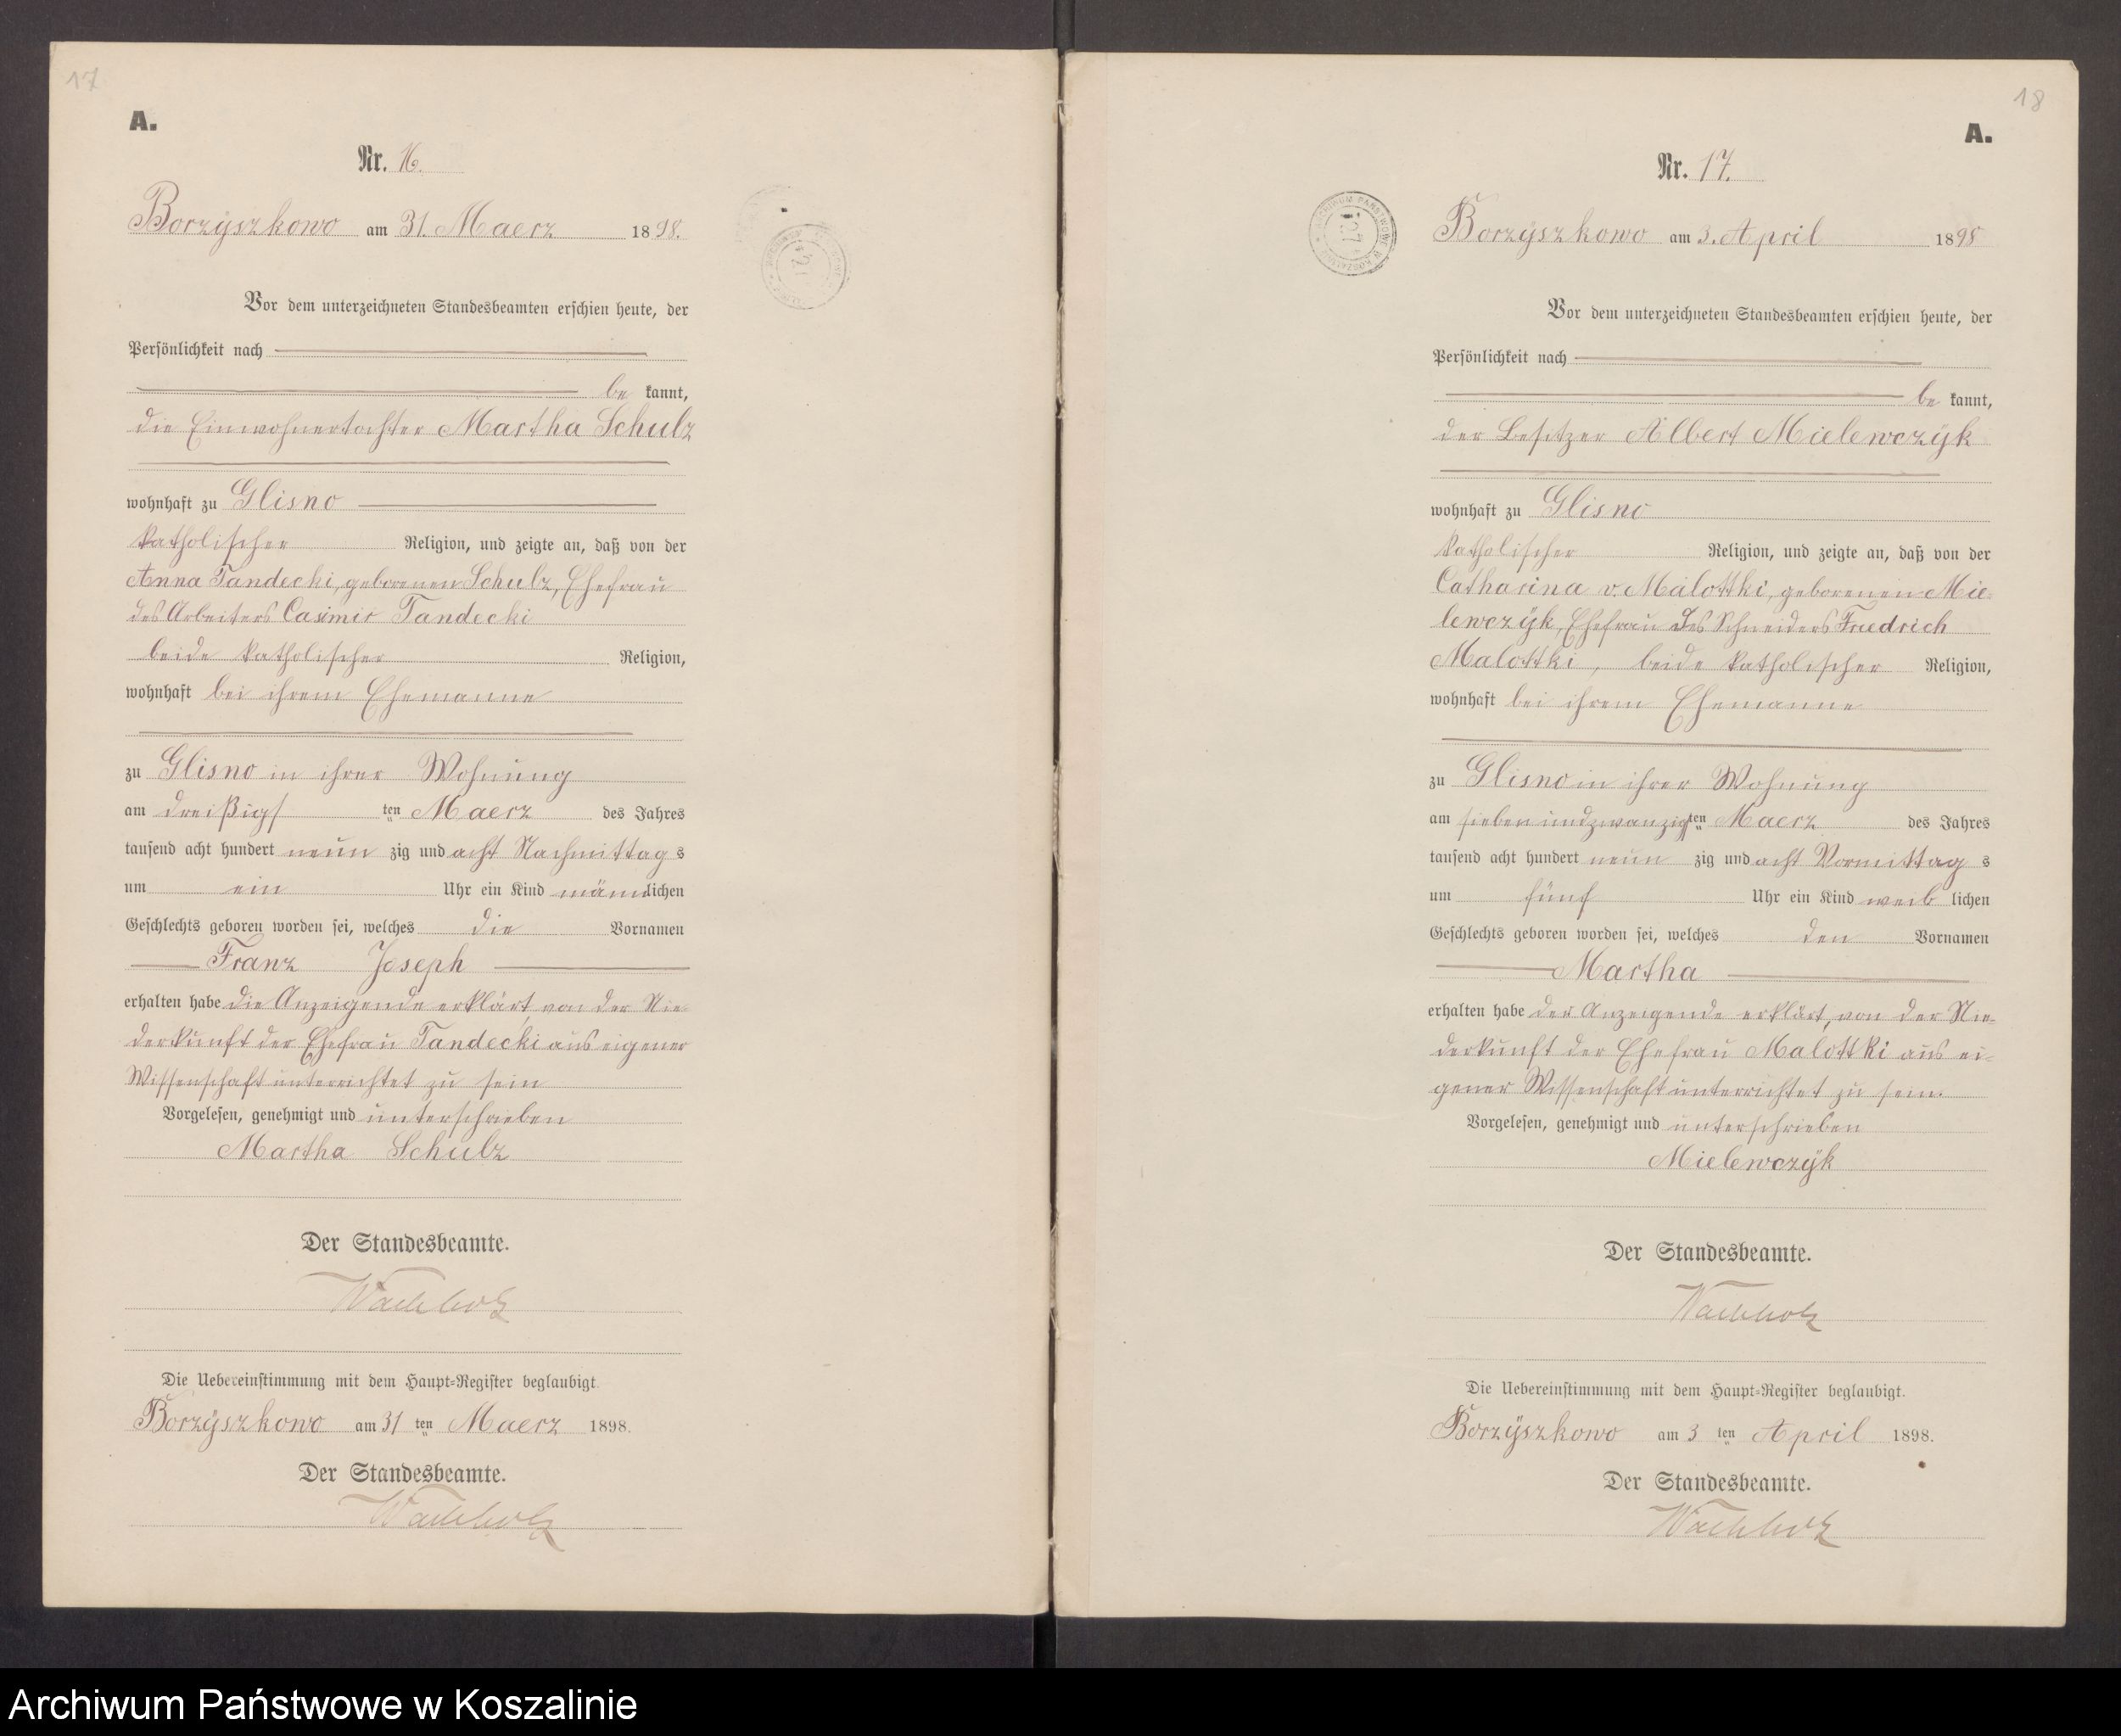 17
A.
Nr. 16.
Borzÿszkowo am 31. Maerz 1898.
Vor dem unterzeichneten Standesbeamten erschien heute, der
Persönlichkeit nach
be kannt,
die Einwohnertochter Martha Schulz
wohnhaft zu Glisno
katholischer Religion, und zeigte an, daß von der
Anna Tandecki, geborenen Schulz, Ehefrau
des Arbeiters Casimir Tandecki
beide katholischer Religion,
wohnhaft bei ihrem Ehemanne
zu Glisno in ihrer Wohnung
am dreißigs ten Maerz des Jahres
tausend acht hundert neun zig und acht Nachmittag s
um ein Uhr ein Kind männlichen
Geschlechts geboren worden sei, welches die Vornamen
Franz Joseph
erhalten habe die Anzeigende erklärt, von der Nie-
derkunft der Ehefrau Tandecki aus eigener
Wissenschaft unterrichtet zu sein
Vorgelesen, genehmigt und unterschrieben
Martha Schulz
Der Standesbeamte.
Wachholz
Die Uebereinstimmung mit dem Haupt-Register beglaubigt.
Borzÿszkowo am 31 ten Maerz 1898.
Der Standesbeamte.
Wachholz
18
A.
Nr. 17.
ARCHIWUM PAŃSTWOWE W KOSZALINIE
Borzÿszkowo am 3. April 1898
Vor dem unterzeichneten Standesbeamten erschien heute, der
Persönlichkeit nach
be kannt,
der Besitzer Albert Mielewczÿk
wohnhaft zu Glisno
katholischer Religion, und zeigte an, daß von der
Catharina v. Malottki, geborenen Mie-
lewczÿk, Ehefrau des Schneiders Friedrich
Malottki, beide katholischer Religion,
wohnhaft bei ihrem Ehemanne
zu Glisno in ihrer Wohnung
am siebenundzwanzigsten Maerz des Jahres
tausend acht hundert neun zig und acht Vormittag s
um fünf Uhr ein Kind weib lichen
Geschlechts geboren worden sei, welches den Vornamen
Martha
erhalten habe der Anzeigende erklärt, von der Nie-
derkunft der Ehefrau Malottki aus ei-
gener Wissenschaft unterrichtet zu sein.
Vorgelesen, genehmigt und unterschrieben
Mielewczÿk
Der Standesbeamte.
Wachholz
Die Uebereinstimmung mit dem Haupt-Register beglaubigt.
Borzÿszkowo am 3 ten April 1898.
Der Standesbeamte.
Wachholz
Archiwum Państwowe w Koszalinie